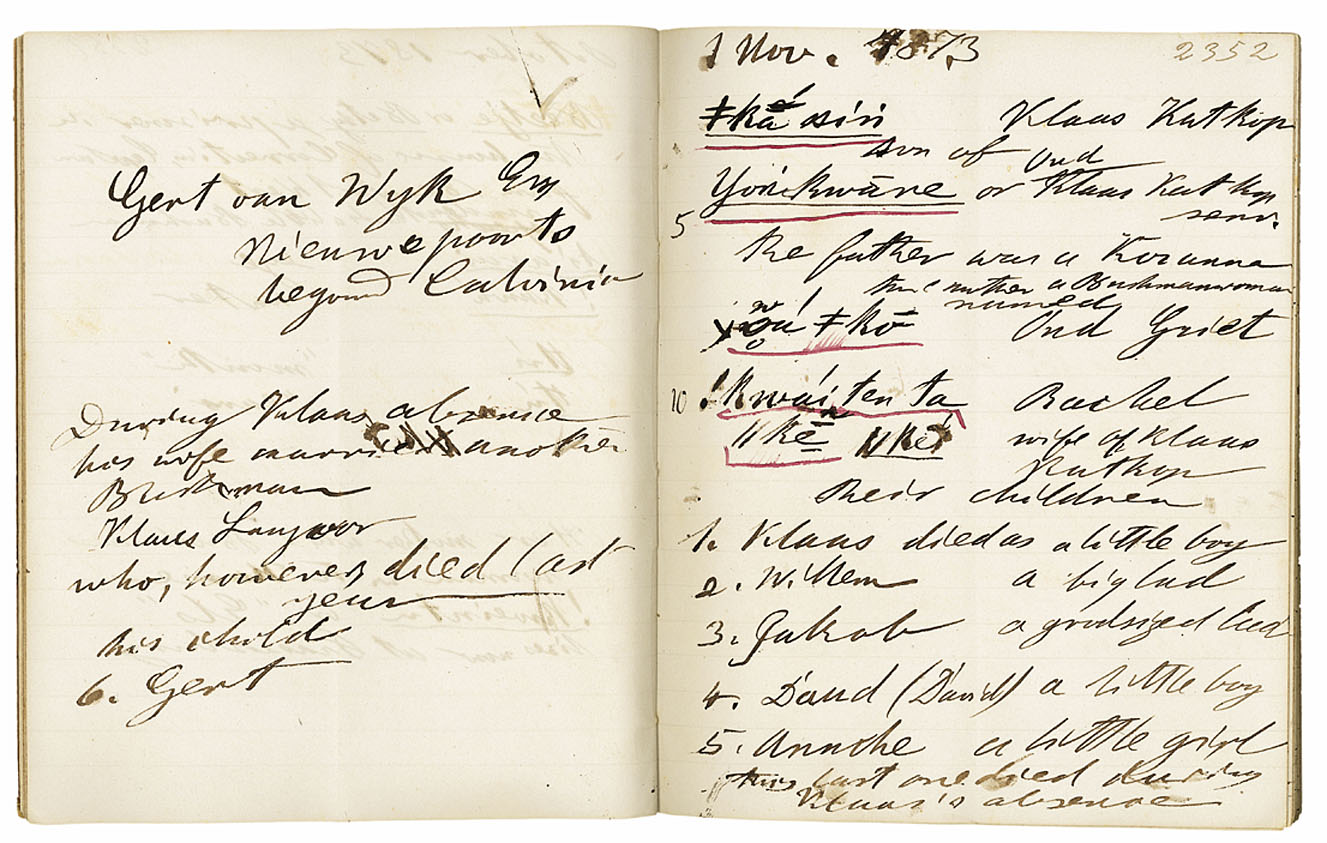 Gert van Wyk Esq
Nieuwepoorts
beyond Calvinia
During Klaas absence
his wife married another
Bushman
Klaas
who, however, died last
year
his child
6. Gert
1 Nov. 1873
2352
ǂkā́ siń Klaas Katkop
son of Oud
Yóṅkwāne or Klaas Katkop
senr.
5
the father was a Koranna
the mother a Bushmanwoman
named
ǂkō Oud Griet
10 !kwáiten ta Rachel
ǁkē ǁke wife of Klaas
Katkop
their children
1. Klaas died as a little boy
2. Willem a big lad
3. Jakob a goodsized lad
4. Daud (David) a little boy
5. Annche a little girl
this last one died during
Klaas's absence